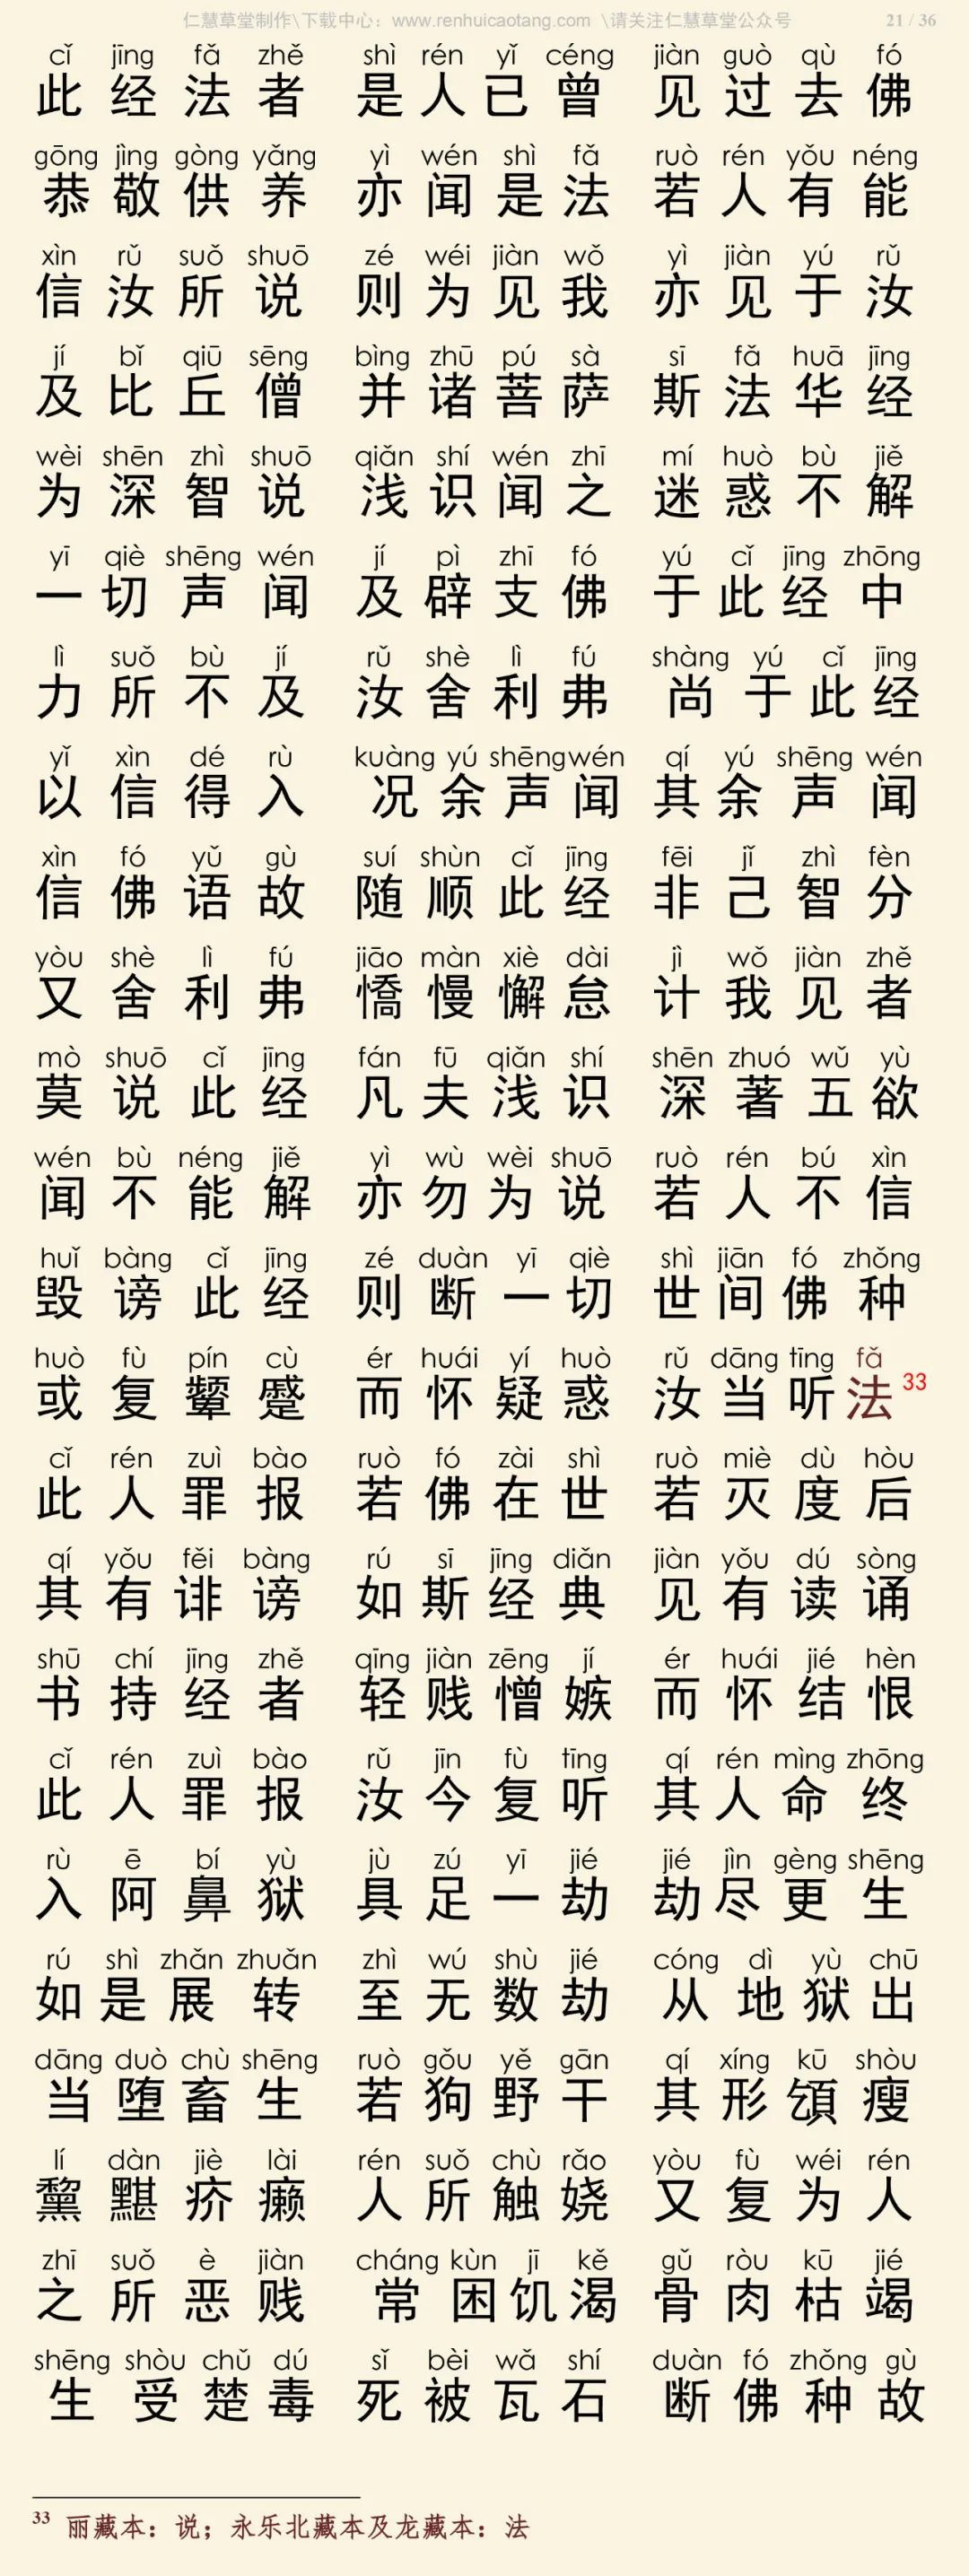 仁慧草堂制作\下载中心：www.renhuicaotang.com \请关注仁慧草堂公众号 21 / 36
cǐ jīng fǎ zhě shì rén yǐ céng jiàn guò qù fó
此经法者 是人已曾 见过去佛
gōng jìng gòng yǎng yì wén shì fǎ ruò rén yǒu néng
恭敬供养 亦闻是法 若人有能
xìn rǔ suǒ shuō zé wéi jiàn wǒ yì jiàn yú rǔ
信汝所说 则为见我 亦见于汝
jí bǐ qiū sēng bìng zhū pú sà sī fǎ huā jīng
及比丘僧 并诸菩萨 斯法华经
wèi shēn zhì shuō qiǎn shí wén zhī mí huò bù jiě
为深智说 浅识闻之 迷惑不解
yī qiè shēng wén jí pì zhī fó yú cǐ jīng zhōng
一切声闻 及辟支佛 于此经中
lì suǒ bù jí rǔ shè lì fú shàng yú cǐ jīng
力所不及 汝舍利弗 尚于此经
yǐ xìn dé rù kuàng yú shēng wén qí yú shēng wén
以信得入 况余声闻 其余声闻
xìn fó yǔ gù suí shùn cǐ jīng fēi jǐ zhì fèn
信佛语故 随顺此经 非己智分
yòu shè lì fú jiāo màn xiè dài jì wǒ jiàn zhě
又舍利弗 憍慢懈怠 计我见者
mò shuō cǐ jīng fán fū qiǎn shí shēn zhuó wǔ yù
莫说此经 凡夫浅识 深著五欲
wén bù néng jiě yì wù wèi shuō ruò rén bú xìn
闻不能解 亦勿为说 若人不信
huǐ bàng cǐ jīng zé duàn yī qiè shì jiān fó zhǒng
毁谤此经 则断一切 世间佛种
huò fù pín cù ér huái yí huò rǔ dāng tīng fǎ
或复颦蹙 而怀疑惑 汝当听法33
cǐ rén zuì bào ruò fó zài shì ruò miè dù hòu
此人罪报 若佛在世 若灭度后
qí yǒu fěi bàng rú sī jīng diǎn jiàn yǒu dú sòng
其有诽谤 如斯经典 见有读诵
shū chí jīng zhě qīng jiàn zēng jí ér huái jié hèn
书持经者 轻贱憎嫉 而怀结恨
cǐ rén zuì bào rǔ jīn fù tīng qí rén mìng zhōng
此人罪报 汝今复听 其人命终
rù ē bí yù jù zú yī jié jié jìn gèng shēng
入阿鼻狱 具足一劫 劫尽更生
rú shì zhǎn zhuǎn zhì wú shù jié cóng dì yù chū
如是展转 至无数劫 从地狱出
dāng duò chù shēng ruò gǒu yě gān qí xíng kū shòu
当堕畜生 若狗野干 其形頜瘦
lí dàn jiè lài rén suǒ chù rǎo yòu fù wéi rén
黧黮疥癞 人所触娆 又复为人
zhī suǒ è jiàn cháng kùn jī kě gǔ ròu kū jié
之所恶贱 常困饥渴 骨肉枯竭
shēng shòu chǔ dú sǐ bèi wǎ shí duàn fó zhǒng gù
生受楚毒 死被瓦石 断佛种故
33 丽藏本：说；永乐北藏本及龙藏本：法